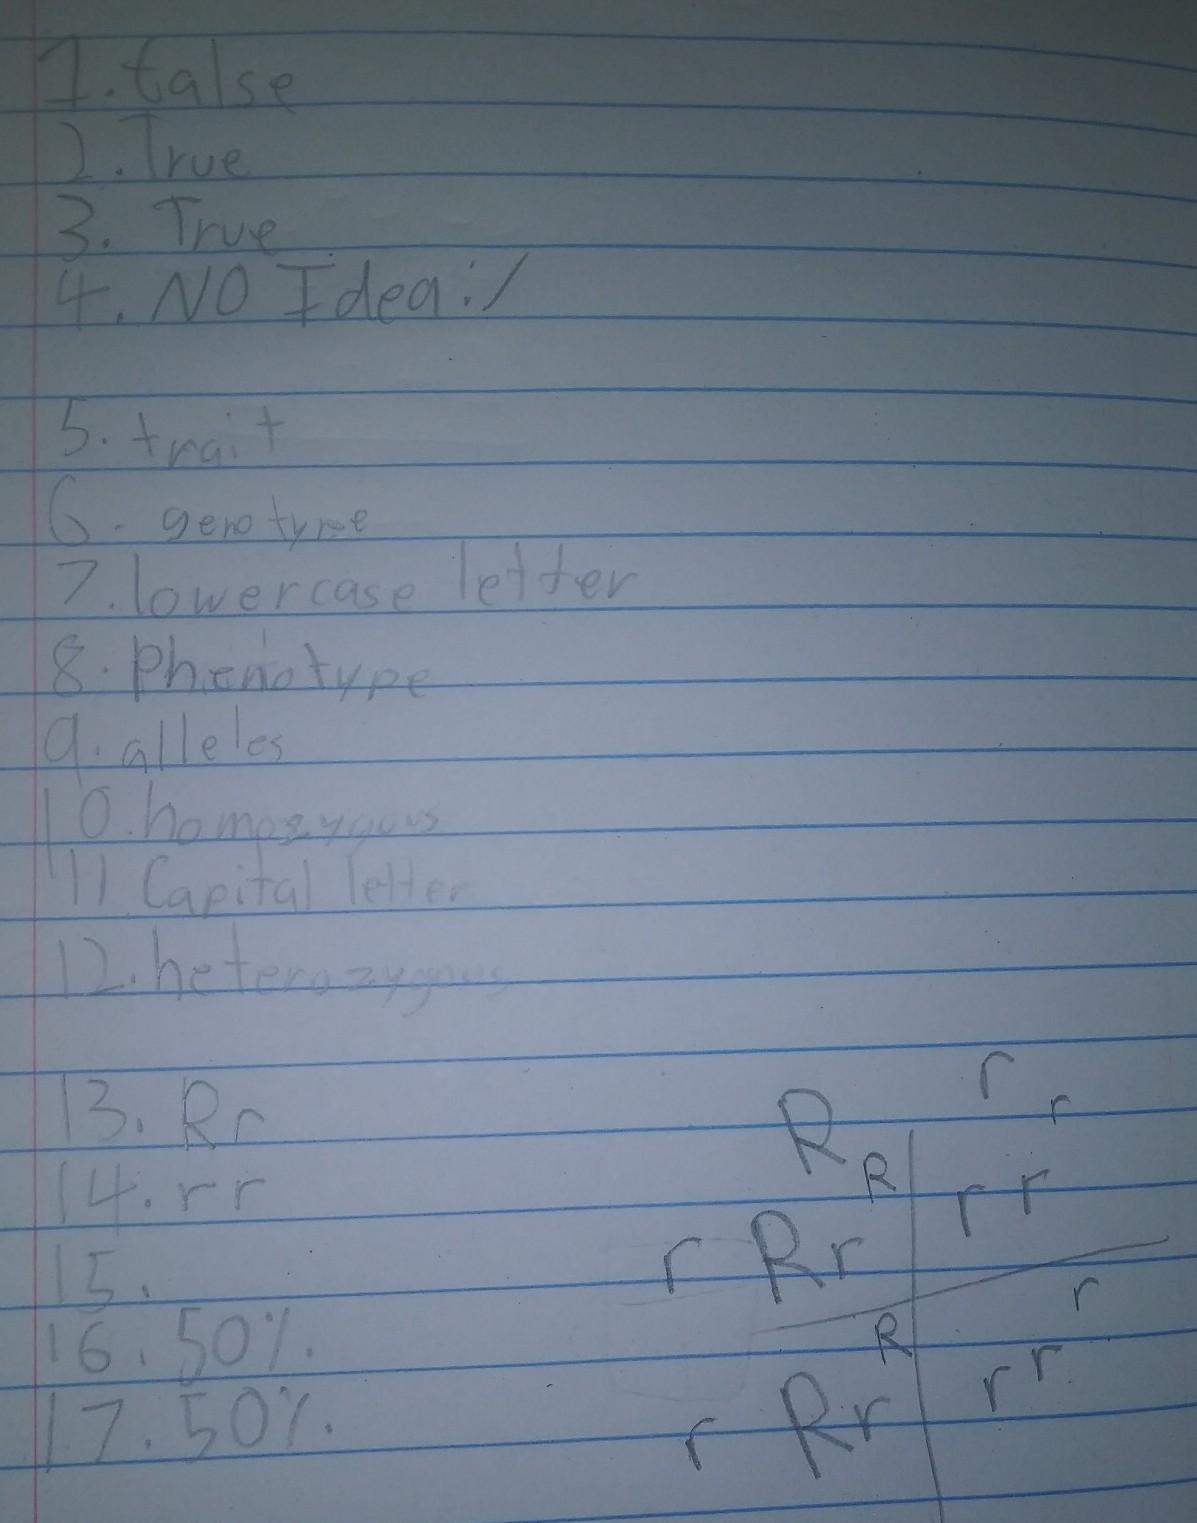 1. false
2. True
3. True
4. NO Idea :/
5. trait
6. genotype
7. lowercase letter
8. Phenotype
9. alleles
10. homozygous
11 Capital letter
12. heterozygous
13. Rr
14. rr
15.
16. 50%.
17. 50%.
R r
R r
r Rr rr
R r
r Rr rr